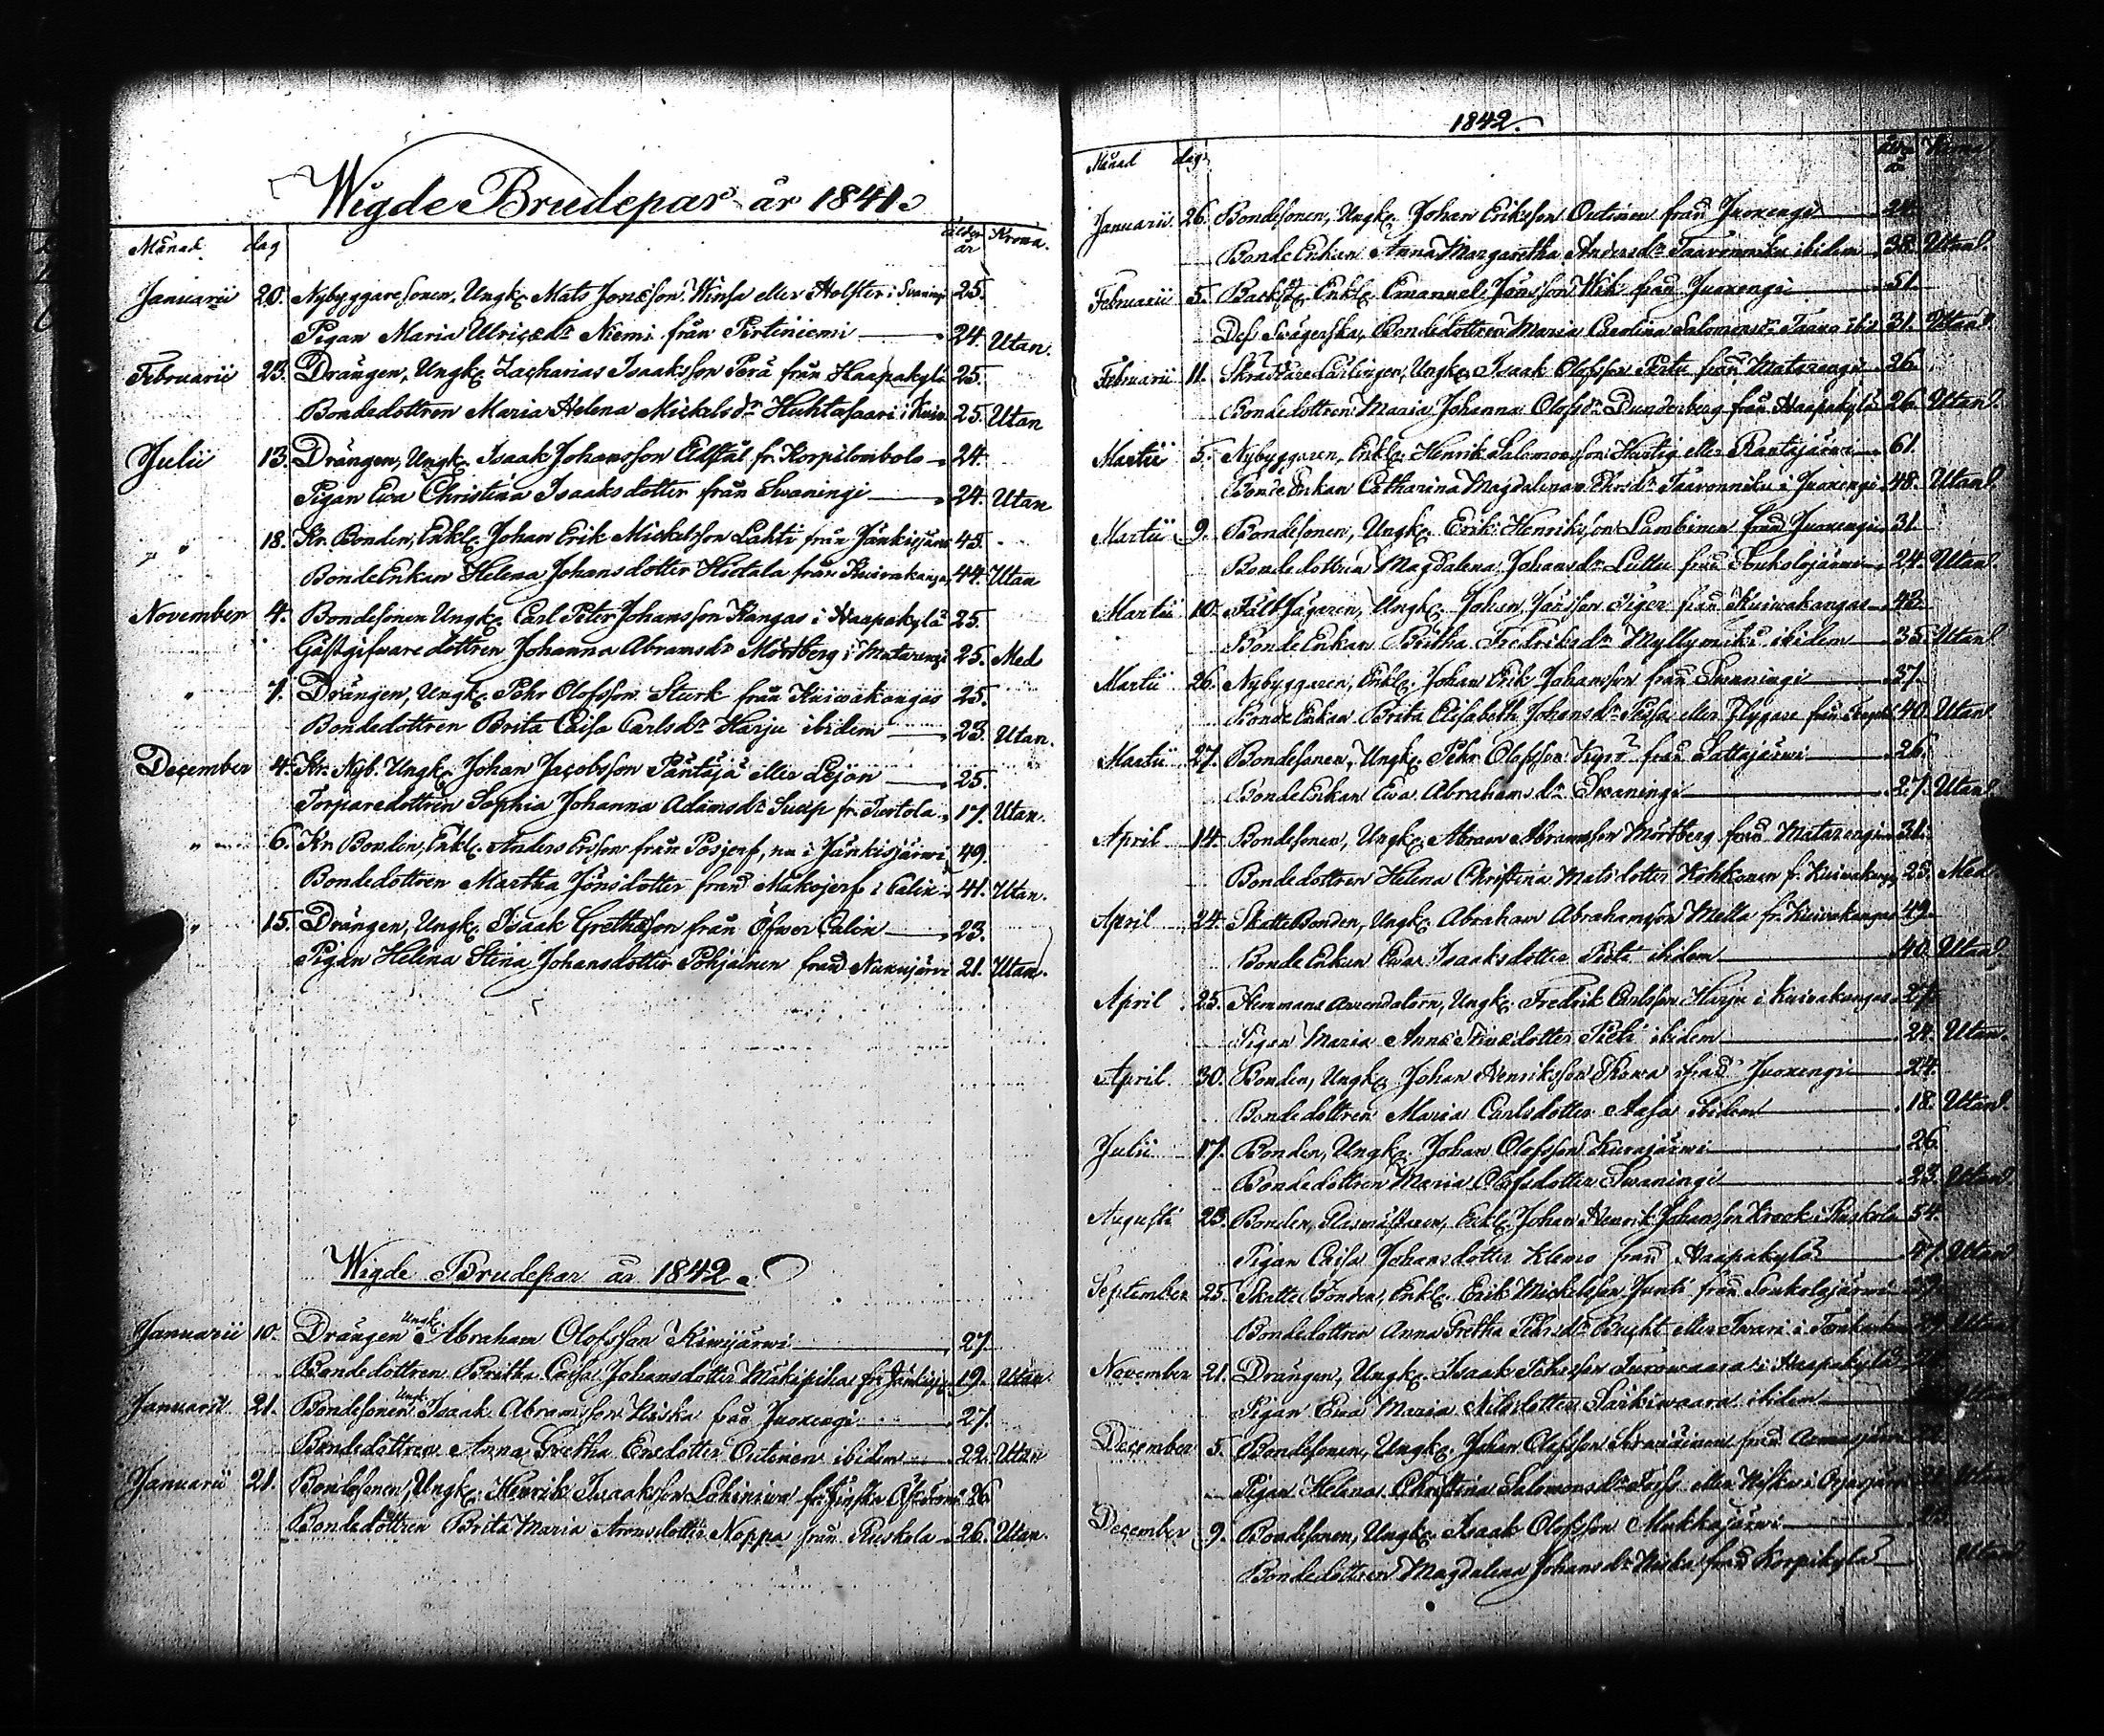 Wigde Brudepar år 1841.
Månad dag ålder år Krona.
Januarii 20. Nybyggaresonen, Ungk. Mats Jonsson Winsa eller Holster i Svaningi 25.
Pigan Maria Ulricsdr Niemi från Pirtiniemi 24. Utan.
Februarii 23. Drängen, Ungk. Zacharias Isaksson Perä från Haapakylä 25.
Bondedottren Maria Helena Mickelsdr Huhtasaari i Kuiv. 25. Utan
Julii 13. Drängen, Ungk. Isaak Johansson fr. Korpilombolo 24.
Pigan Ewa Christina Isaaksdotter från Swaningi 24. Utan
" " 18. Kr. Bonden, Enkl. Johan Erik Mickelsson Lahti från Jänkisjärvi 45.
BondeEnkan Helena Johansdotter Hietala från Kuivakangas 44. Utan
November 4. Bondesonen Ungk. Carl Peter Johansson Kangas i Haapakylä 25.
Gästgifware dottren Johanna Abramsdr Mörtberg i Matarengi 25. Med
" 7. Drängen, Ungk. Pehr Olofsson Stark från Kuiwakangas 25.
Bondedottren Brita Caisa Carlsdr Harju ibidem 23. Utan.
December 4. Kr. Nyb. Ungk. Johan Jacobsson Päntäjä eller Lejon 25.
Torparedottren Sophia Johanna Adamsdr fr. Turtola 17. Utan.
" 6. Kr. Bonden, Enkl. Anders Ersson från Posjerf, nu i Jänkisjärwi 49.
Bondedottren Martha Jönsdotter från Råkojerf i Calix 41. Utan.
" 15. Drängen, Ungk. Isaak Grethesson från Öfwer Calix 23.
Pigan Helena Stina Johansdotter Pohjainen från Nuuksjärvi 21. Utan.
Wigde Brudepar år 1842.
Januarii 10. Drängen Ungk. Abraham Olofsson Kiwijärwi 27.
Bondedottren Britha Caisa Johansdotter Mäkipiha fr. 19. Utan
Januarii 21. Bondesonen Ungk. Isaak Abramsson Niska från Juoxengi 27.
Bondedottren Anna Gretha Ersdotter Outinen ibidem 22. Utan
Januarii 21. Bondesonen, Ungk. Henrik Isaaksson Lahiniva fr. 26
Bondedottren Brita Maria Aronsdotter Noppa från Ruskola 26. Utan.
1842.
Månad dag år Krona
Januarii 26. Bondesonen, Ungk. Johan Eriksson Outinen från Juoxengi 24.
BondeEnkan Anna Margaretha Andersdr Taavonniku ibidem 38. Utan
Februarii 5. Enkl. Emanuel Jönsson Wik från Juoxengi 51.
Des Svägerska, Bondedottren Maria Carolina Salomonsdr ibid. 31. Utan
Februarii 11. Skräddare Lärlingen, Ungk. Isaak Olofsson Pertu från Matarengi 26.
Bondedottren Maria Johanna Olofsdr Dunderberg från Haapakylä 26. Utan
Martii 5. Nybyggaren, Enkl. Henrik Salomonsson Hurtig eller Rantajärwi 61.
BondeEnkan Catharina Magdalena Pehrsdr Taavonniku i Juoxengi 48. Utan
Martii 9. Bondesonen, Ungk. Erik Henriksson Lambinen från Juoxengi 31.
Bondedottren Magdalena Johansdr Luttu från Soukolojärwi 24. Utan.
Martii 10. FältJägaren, Ungk. Johan Jönsson Tiger från Kuiwakangas 43.
BondeEnkan Britha Fredriksdr Myllymäki ibidem 35. Utan
Martii 26. Nybyggaren, Enkl. Johan Erik Johansson från Swaningi 37.
BondeEnkan Brita Elisabeth Johansdr eller Flygare från 40. Utan
Martii 27. Bondesonen, Ungk. Pehr Olofsson från Lattajärwi 26.
BondeEnkan Ewa Abrahamsdr Swaningi 27. Utan.
April 14. Bondesonen, Ungk. Abram Abramsson Mörtberg från Matarengi 31.
Bondedottren Helena Christina Matsdotter Kohkonen fr. Kuiwakangas 25. Med
April 24. SkatteBonden, Ungk. Abraham Abrahamsson Mella fr. Kuivakangas 49.
BondeEnkan Ewa Isaaksdotter ibidem 40. Utan
April 25. Hemmans Arrendatorn, Ungk. Fredrik Carlsson Harju i Kuivakangas 27.
Pigan Maria Anna Stinasdotter ibidem 24. Utan.
April 30. Bonden, Ungk. Johan Henriksson från Juoxengi 24.
Bondedottren Maria Carlsdotter ibidem 18. Utan.
Julii 17. Bonden, Ungk. Johan Olofsson Kurajärwi 26
Bondedottren Maria Olofsdotter Swaningi 23. Utan
Augusti 23. Bonden, Glasmästaren, Enkl. Johan Henrik Johansson Krook i Ruskola 54.
Pigan Caisa Johansdotter Klemo från Haapakylä 47. Utan
September 25. SkatteBonden, Enkl. Erik Mickelsson Junti från Soukolojärwi
Bondedottren Anna Gretha Pehrsdr Bucht eller 29. Utan
November 21. Drängen, Ungk. Isaak i Haapakylä
Pigan Ewa Maria Nilsdotter Särkiwaara ibidem
December 5. Bondesonen, Ungk. Johan Olofsson från Armasjärvi
Pigan Helena Christina Salomonsdr eller Niska i
December 9. Bondesonen, Ungk. Isaak Olofsson Mukkajärwi
Bondedottren Magdalena Johansdr Niska från Korpikylä Utan